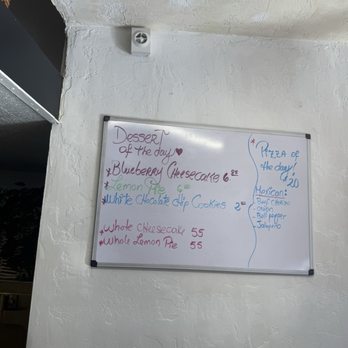 Dessert
of the day ♥
* Blueberry Cheesecake 6
* Lemon Pie 6
* White Chocolate Chip Cookies 2
* Whole Cheesecake 55
* Whole Lemon Pie 55
* Pizza of
the day!
20
Mexican:
- Beef
- onion
- Bell pepper
- Jalapeño